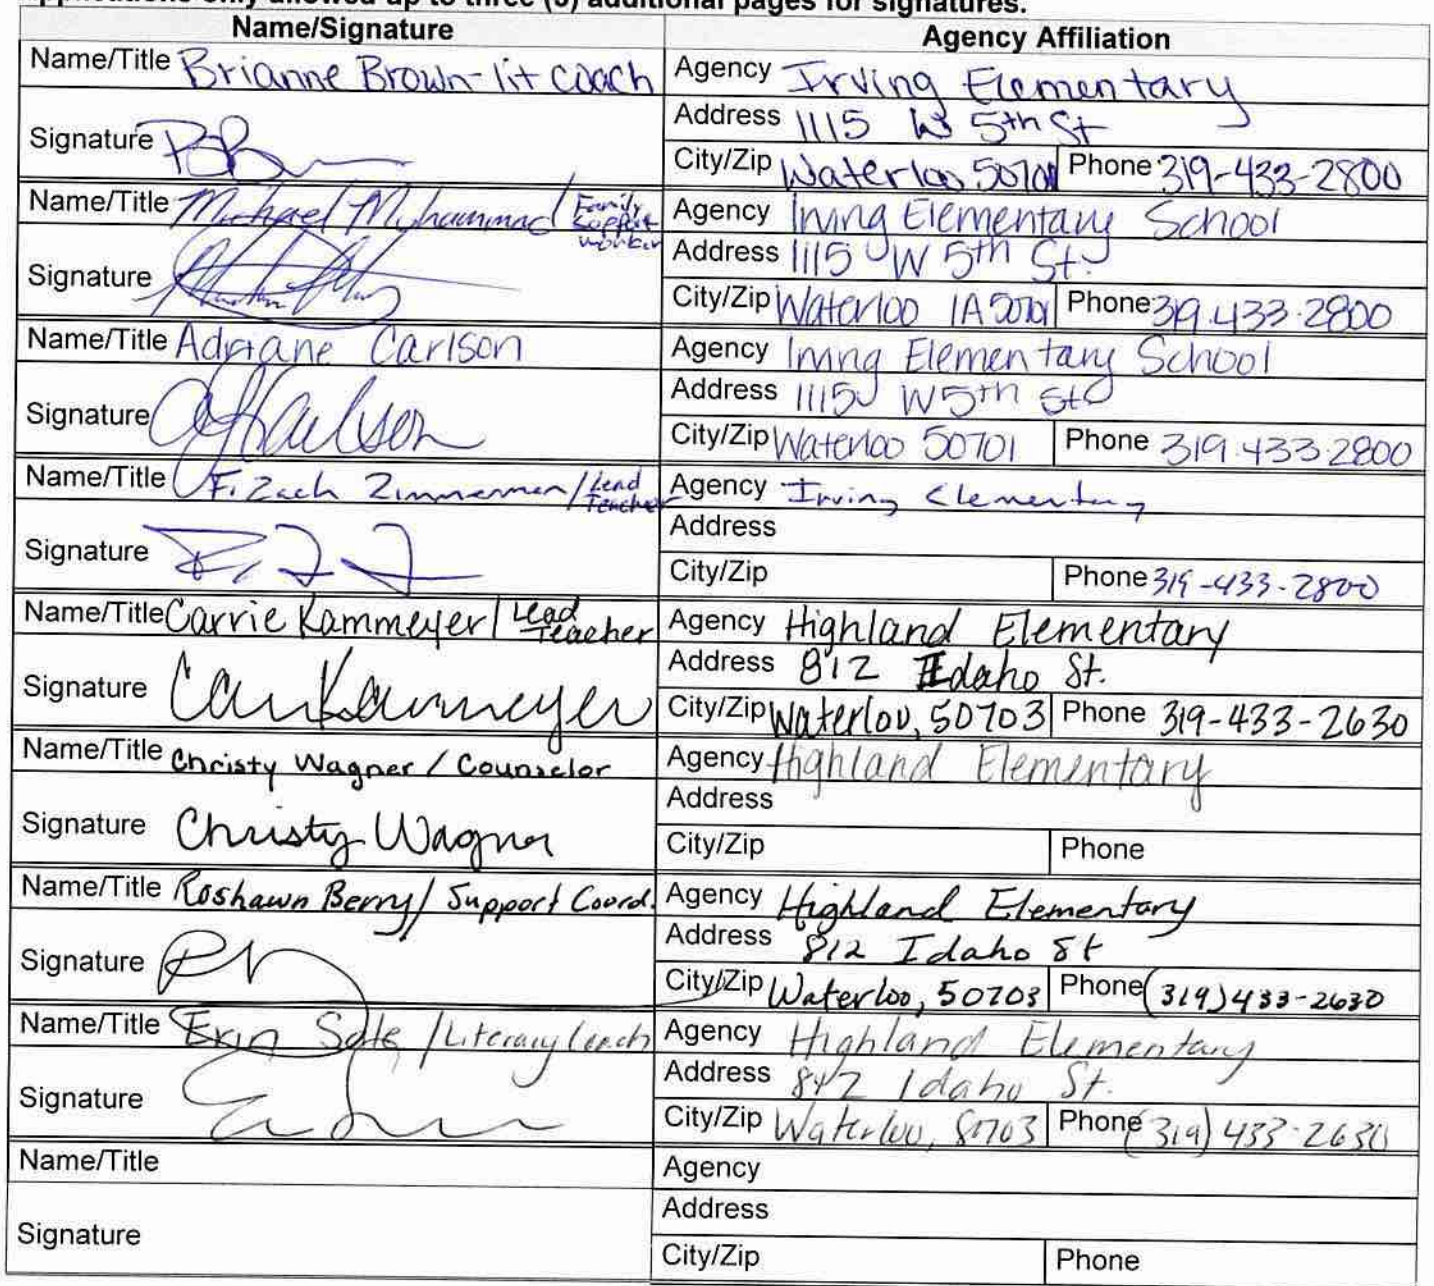 applications only allowed up to three (3) additional pages for signatures.
Name/Signature Agency Affiliation
Name/Title Brianne Brown-lit coach
Agency Irving Elementary
Address 1115 W 5th St
Signature
City/Zip Waterloo 50701 Phone 319-433-2800
Name/Title Michael Muhammad / Family Support worker
Agency Irving Elementary School
Address 1115 W 5th St.
Signature
City/Zip Waterloo IA 50701 Phone 319.433.2800
Name/Title Adriane Carlson
Agency Irving Elementary School
Address 1115 W 5th St
Signature Carlson
City/Zip Waterloo 50701 Phone 319.433.2800
Name/Title F. Zach Zimmerman / Lead Teacher
Agency Irving Elementary
Address
Signature
City/Zip Phone 319-433-2800
Name/Title Carrie Kammeyer / Lead Teacher
Agency Highland Elementary
Address 812 Idaho St.
Signature Carr Kammeyer
City/Zip Waterloo, 50703 Phone 319-433-2630
Name/Title Christy Wagner / Counselor
Agency Highland Elementary
Address
Signature Christy Wagner
City/Zip Phone
Name/Title Roshawn Berry / Support Coord.
Agency Highland Elementary
Address 812 Idaho St
Signature
City/Zip Waterloo, 50703 Phone (319) 433-2630
Name/Title Erin / Literacy Coach
Agency Highland Elementary
Address 812 Idaho St.
Signature
City/Zip Waterloo, 50703 Phone (319) 433-2630
Name/Title
Agency
Address
Signature
City/Zip Phone